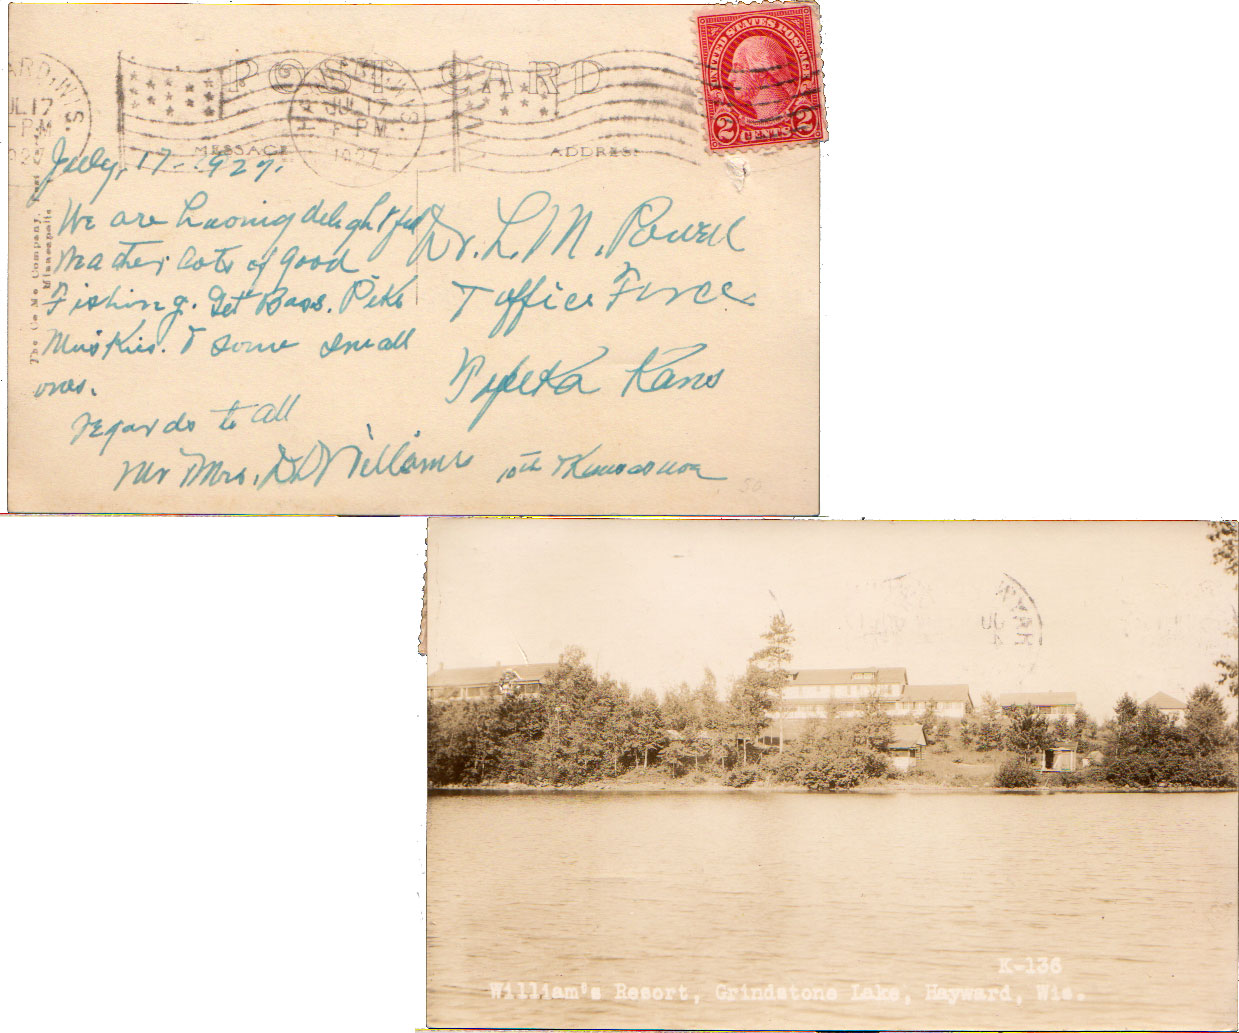 POST CARD
MESSAGE
ADDRESS
HAYWARD, WIS.
JUL 17
PM
1927
UNITED STATES POSTAGE
2 CENTS 2
July, 17 - 1927.
We are having delightful
Weather, Lots of good
Fishing. Get Bass. Pike
Muskies. & some small
ones.
regards to all
Mr Mrs. D D Williams
Dr. L. M. Powell
& office Force
Topeka Kans
10th & Kansas
The Co Mo Company,
Minneapolis
K-136
William's Resort, Grindstone Lake, Hayward, Wis.